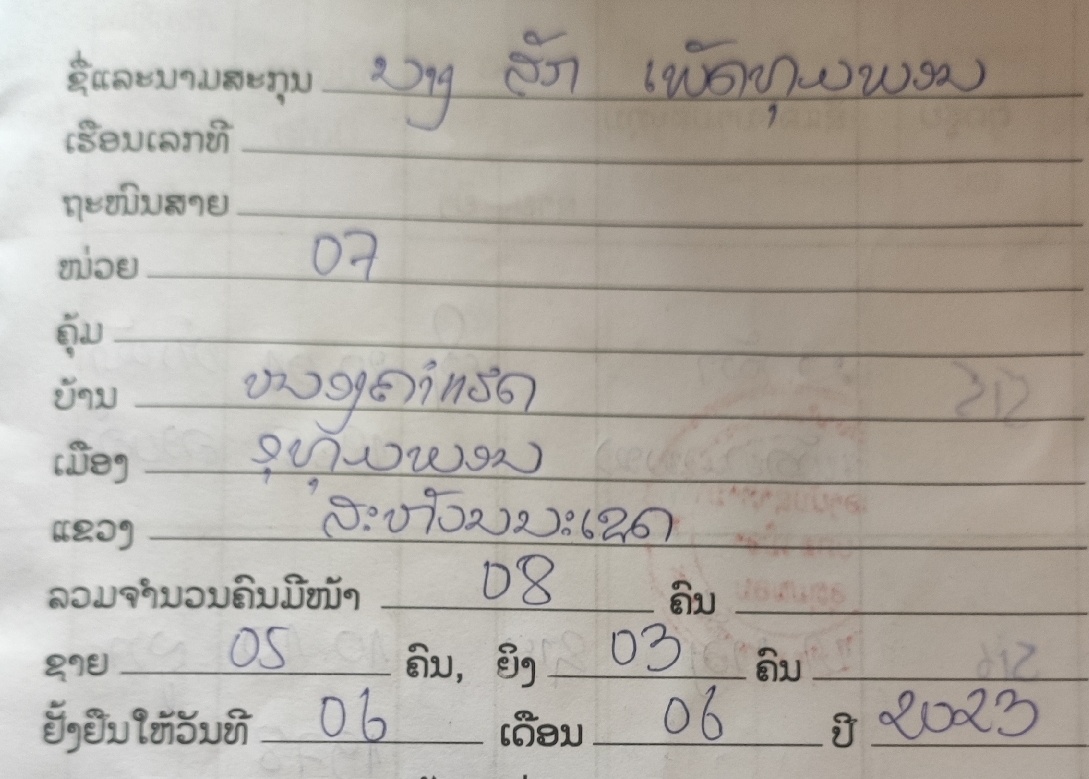 ຊື່ແລະນາມສະກຸນ ນາງ ສັກ ເພັດທຸມພອນ
ເຮືອນເລກທີ
ຖະໜົນສາຍ
ໜ່ວຍ 07
ຄຸ້ມ
ບ້ານ
ເມືອງ ອຸທຸມພອນ
ແຂວງ ສະຫວັນນະເຂດ
ລວມຈຳນວນຄົນມີໜ້າ 08 ຄົນ
ຊາຍ 05 ຄົນ, ຍິງ 03 ຄົນ
ຢັ້ງຢືນໃຫ້ວັນທີ 06 ເດືອນ 06 ປີ 2023